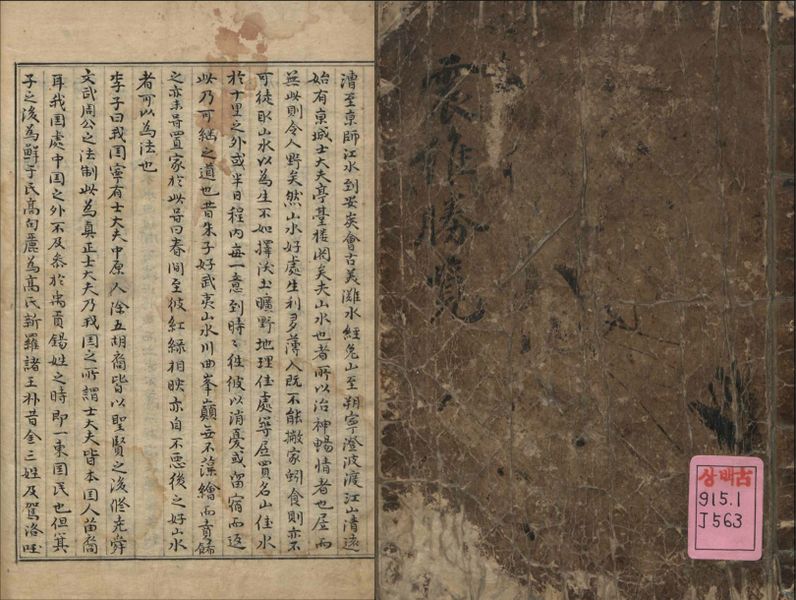 震維勝覽
상백古
915.1
J563
漕至京師江水到安炭會古美灘水經兔山至朔寧澄波渡江山清遠
始有京城士大夫亭臺樓閣矣夫山水也者所以治神暢情者也居而
無此則令人野矣然山水好處生利多薄入既不能搬家蚓食則亦不
可徒取山水以為生不如擇沃土曠野地理佳處築居買名山佳水
於十里之外或半日程內每一意到時〻徃彼以消憂或留宿而返
此乃可繼之道也昔朱子好武夷山水川曲峯巔無不藻繪而賁餙
之亦未嘗置家於此嘗曰春間至彼紅綠相映亦自不悪後之好山水
者可以為法也
李子曰我国寧有士大夫中原人除五胡裔皆以聖賢之後修堯舜
文武周公之法制此為真正士大夫乃我国之所謂士大夫皆本国人苗裔
耳我国處中国之外不及叅於禹貢錫姓之時即一東国民也但箕
子之後為鮮于氏高句麗為高氏新羅諸王朴昔金三姓及駕洛国